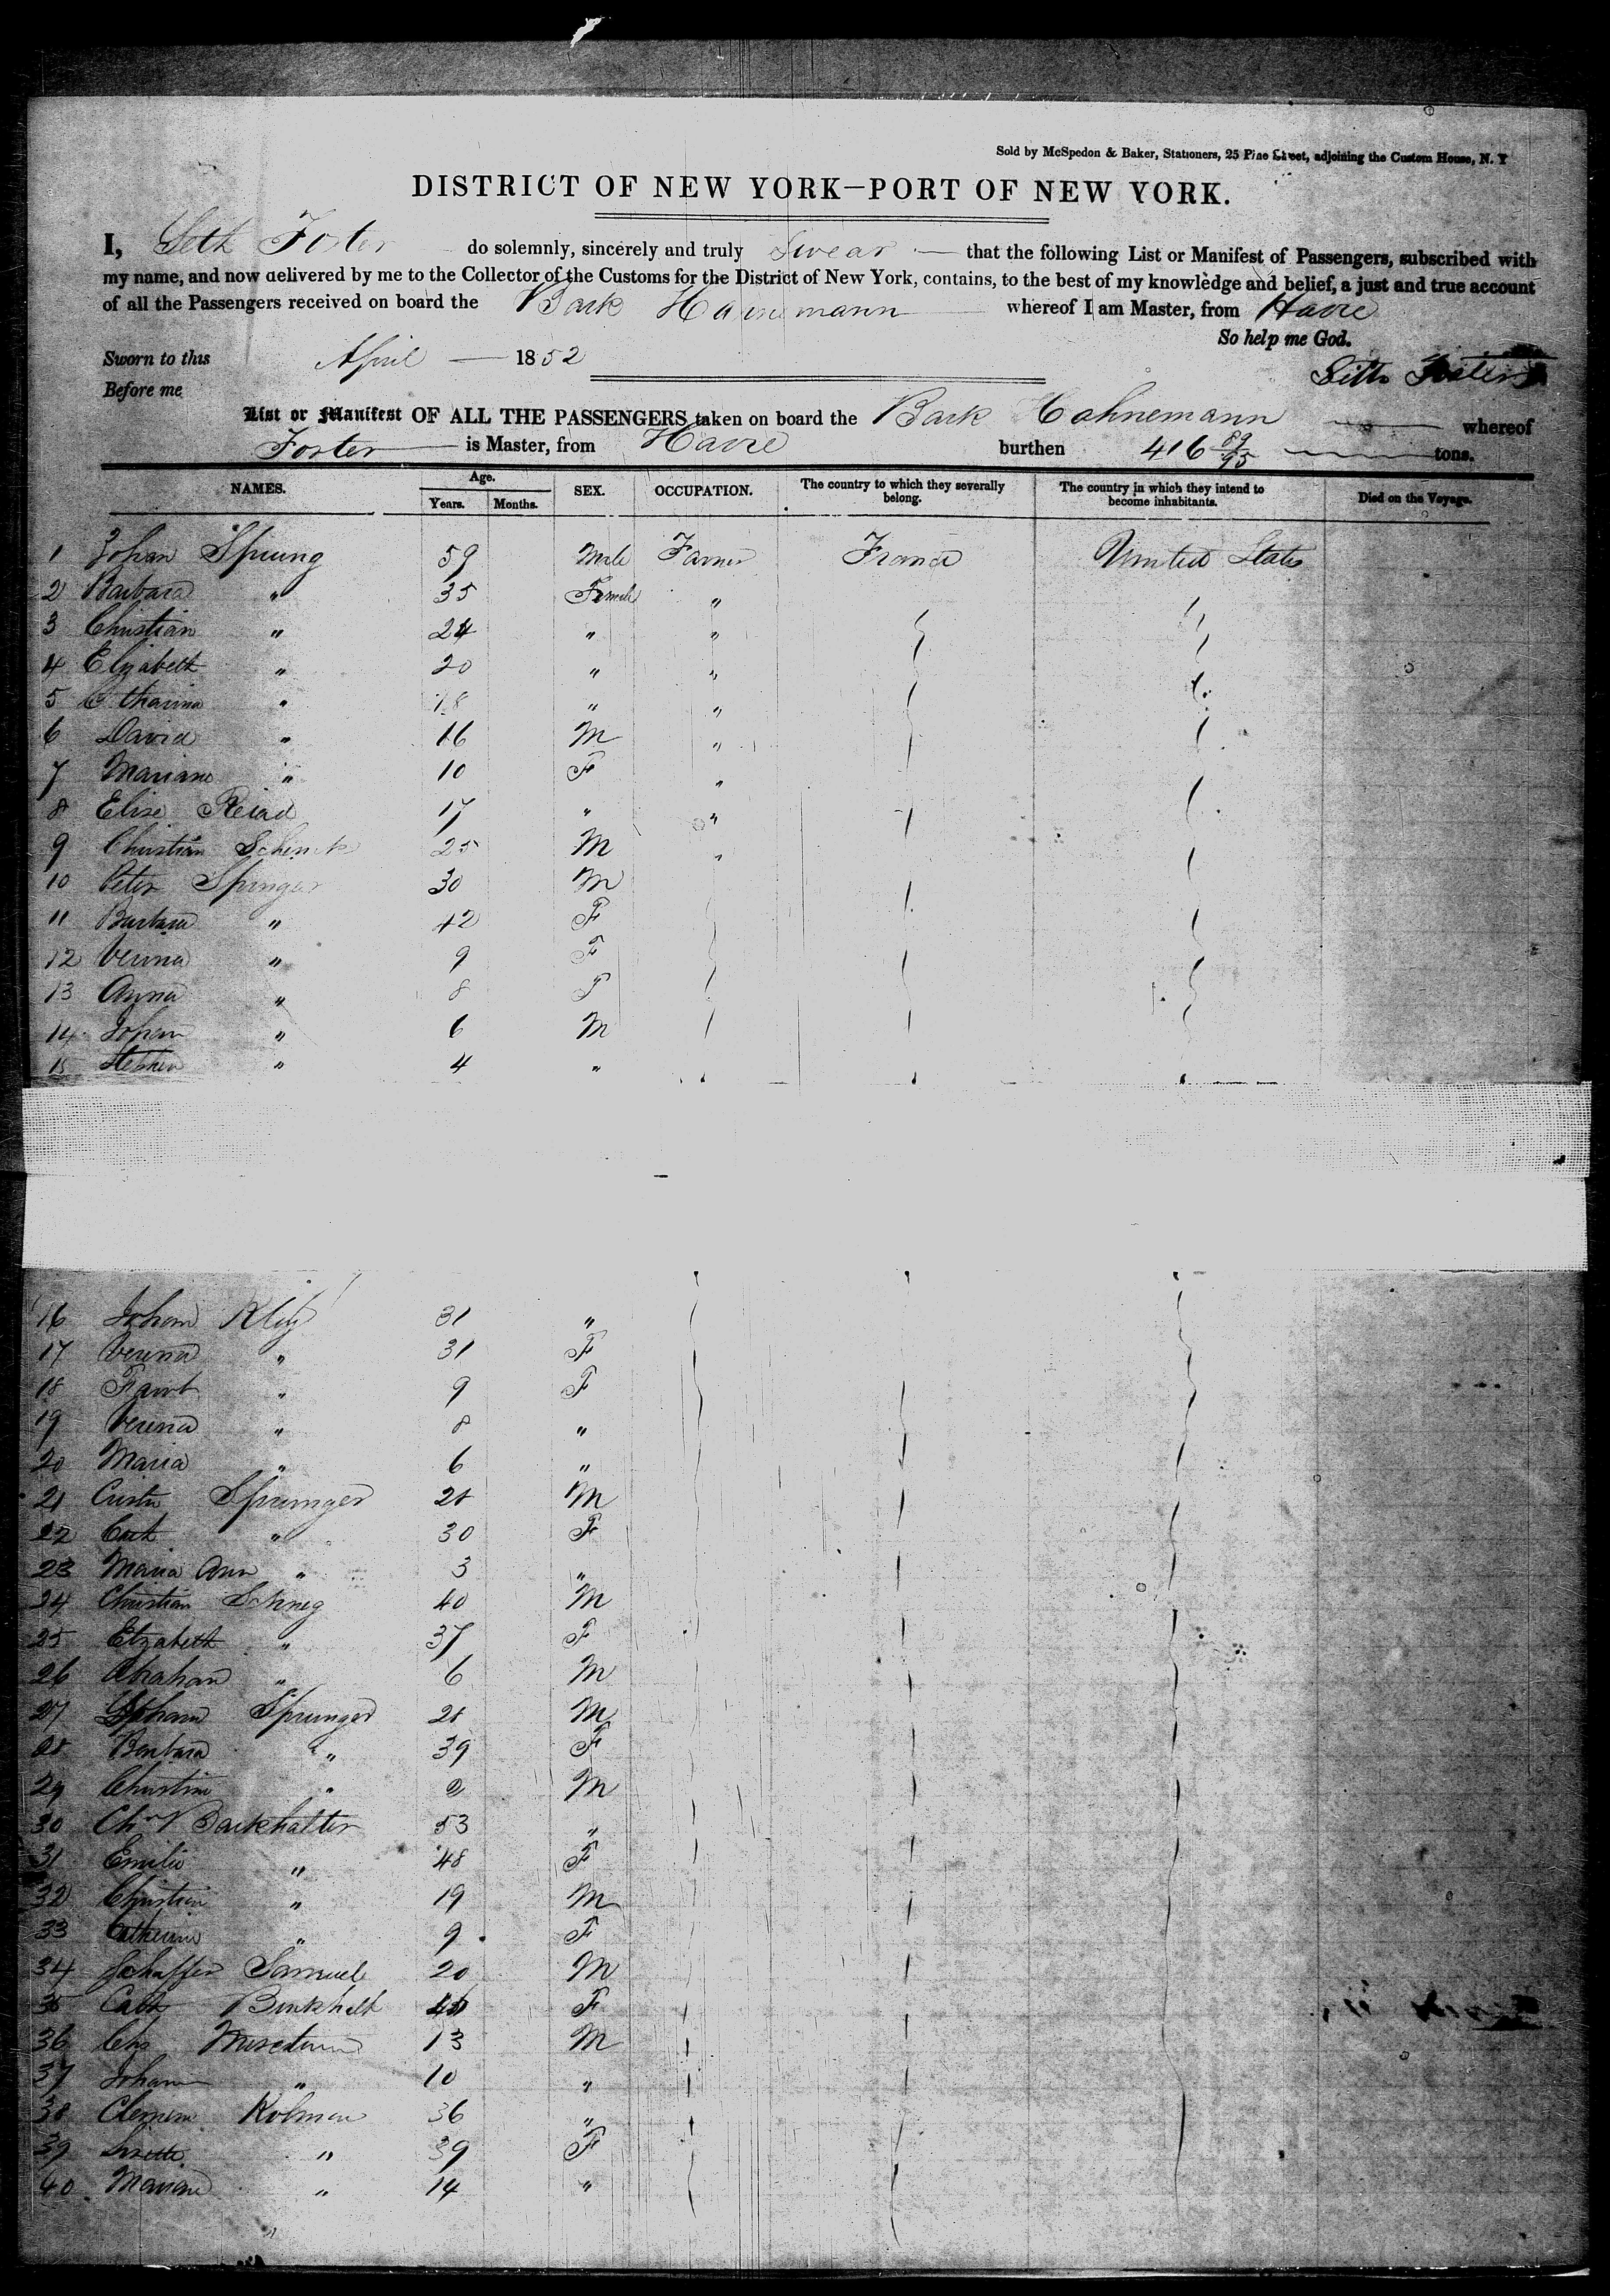 Sold by McSpedon & Baker, Stationers, 25 Pine Street, adjoining the Custom House, N. Y
DISTRICT OF NEW YORK—PORT OF NEW YORK.
I, Seth Foster do solemnly, sincerely and truly Swear — that the following List or Manifest of Passengers, subscribed with
my name, and now delivered by me to the Collector of the Customs for the District of New York, contains, to the best of my knowledge and belief, a just and true account
of all the Passengers received on board the Bark Hahnemann whereof I am Master, from Havre
So help me God.
Sworn to this April — 1852
Seth Foster
Before me
List or Manifest OF ALL THE PASSENGERS taken on board the Bark Hahnemann — whereof
Foster — is Master, from Havre burthen 416 89/95 — tons.
NAMES. Age. Years. Months. SEX. OCCUPATION. The country to which they severally belong. The country in which they intend to become inhabitants. Died on the Voyage.
1 Johan Sprung 59 Male Farmer France United States
2 Barbara " 35 Female "
3 Christian " 24 " "
4 Elizabeth " 20 " "
5 Catharina " 18 " "
6 David " 16 M "
7 Mariane " 10 F "
8 Elise 17 " "
9 Christian Schenck 25 M "
10 Peter Springer 30 M
11 Barbara " 42 F
12 Verena " 9 F
13 Anna " 8 F
14 Johan " 6 M
15 Stephen " 4 "
16 Johan 31 "
17 Verena " 31 F
18 " 9 F
19 Verena " 8 "
20 Maria " 6 "
21 Sprunger 28 M
22 Cath " 30 F
23 Maria Ann " 3 "
24 Christian 40 M
25 Elizabeth " 37 F
26 Abraham " 6 M
27 Sprunger 28 M
28 Barbara " 39 F
29 Christian " 2 M
30 Chr 53 "
31 Emilie " 48 F
32 Christian " 19 M
33 Catherine " 9 F
34 Schaffer Samuel 20 M
35 Cath F
36 Chs 13 M
37 Johann " 10 "
38 Clemens Kolman 36 "
39 Lisette " 39 F
40 Mariane " 14 "
"